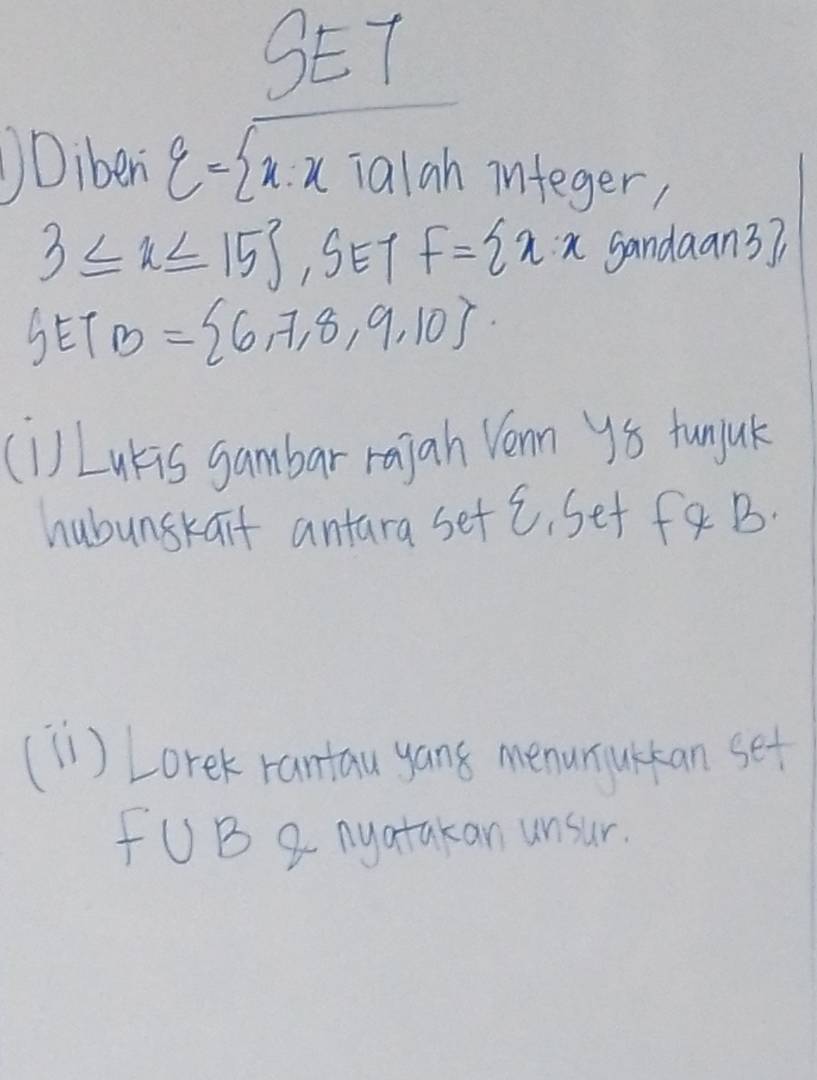 SET
1) Diberi ξ = {x : x ialah integer,
3 ≤ x ≤ 15}, SET F = {x : x gandaan 3},
SET B = {6, 7, 8, 9, 10}.
(i) Lukis gambar rajah Venn yg tunjuk
hubungkait antara set ξ, set F & B.
(ii) Lorek rantau yang menunjukkan set
F ∪ B & nyatakan unsur.